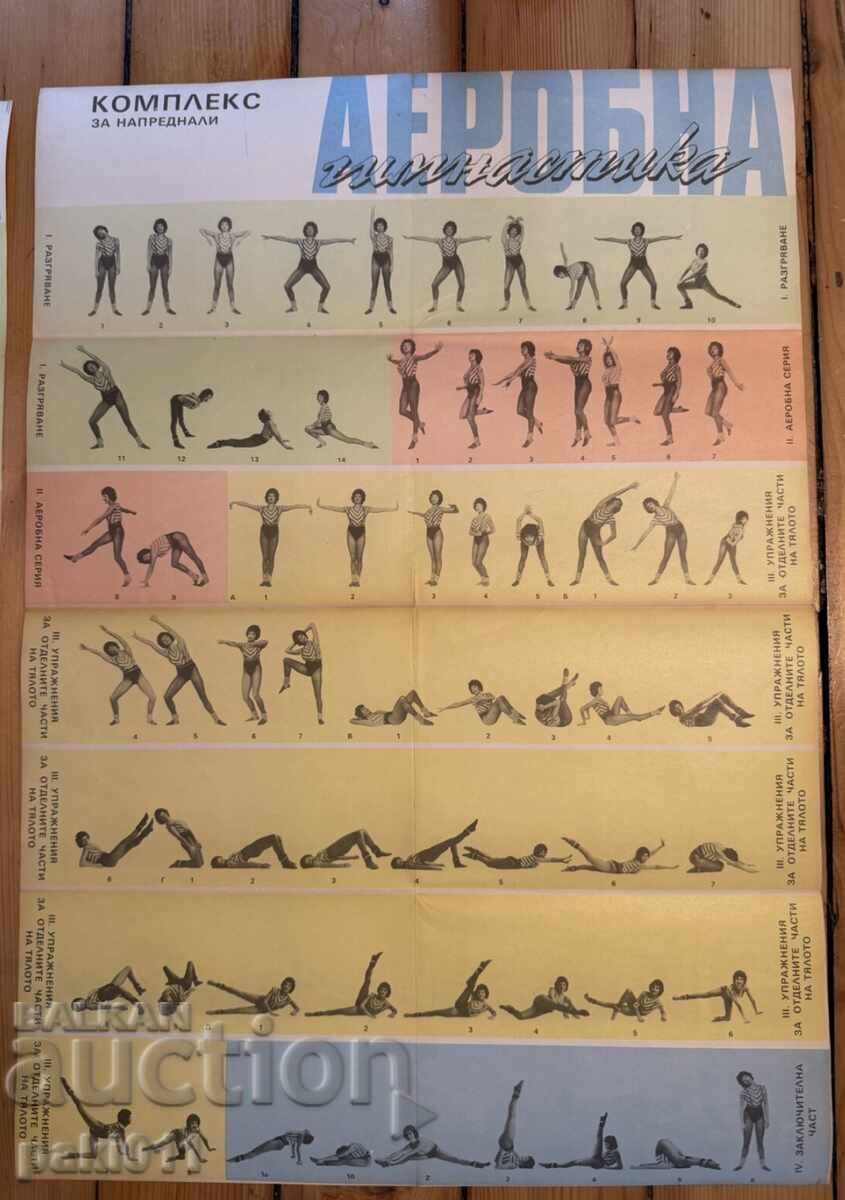 КОМПЛЕКС
ЗА НАПРЕДНАЛИ
АЕРОБНА
гимнастика
I. РАЗГРЯВАНЕ
1 2 3 4 5 6 7 8 9 10
I. РАЗГРЯВАНЕ
I. РАЗГРЯВАНЕ
11 12 13 14
1 2 3 4 5 6 7
II. АЕРОБНА СЕРИЯ
II. АЕРОБНА СЕРИЯ
8 9
А 1 2 3 4 5 Б 1 2 3
III. УПРАЖНЕНИЯ
ЗА ОТДЕЛНИТЕ ЧАСТИ
НА ТЯЛОТО
III. УПРАЖНЕНИЯ
ЗА ОТДЕЛНИТЕ ЧАСТИ
НА ТЯЛОТО
4 5 6 7 В 1 2 3 4 5
III. УПРАЖНЕНИЯ
ЗА ОТДЕЛНИТЕ ЧАСТИ
НА ТЯЛОТО
III. УПРАЖНЕНИЯ
ЗА ОТДЕЛНИТЕ ЧАСТИ
НА ТЯЛОТО
6 Г 1 2 3 4 5 6 7
III. УПРАЖНЕНИЯ
ЗА ОТДЕЛНИТЕ ЧАСТИ
НА ТЯЛОТО
III. УПРАЖНЕНИЯ
ЗА ОТДЕЛНИТЕ ЧАСТИ
НА ТЯЛОТО
1 2 3 4 5 6
III. УПРАЖНЕНИЯ
ЗА ОТДЕЛНИТЕ ЧАСТИ
НА ТЯЛОТО
III. УПРАЖНЕНИЯ
ЗА ОТДЕЛНИТЕ ЧАСТИ
НА ТЯЛОТО
2 3 4 5 6
IV. ЗАКЛЮЧИТЕЛНА
ЧАСТ
BALKAN
auction
paki911